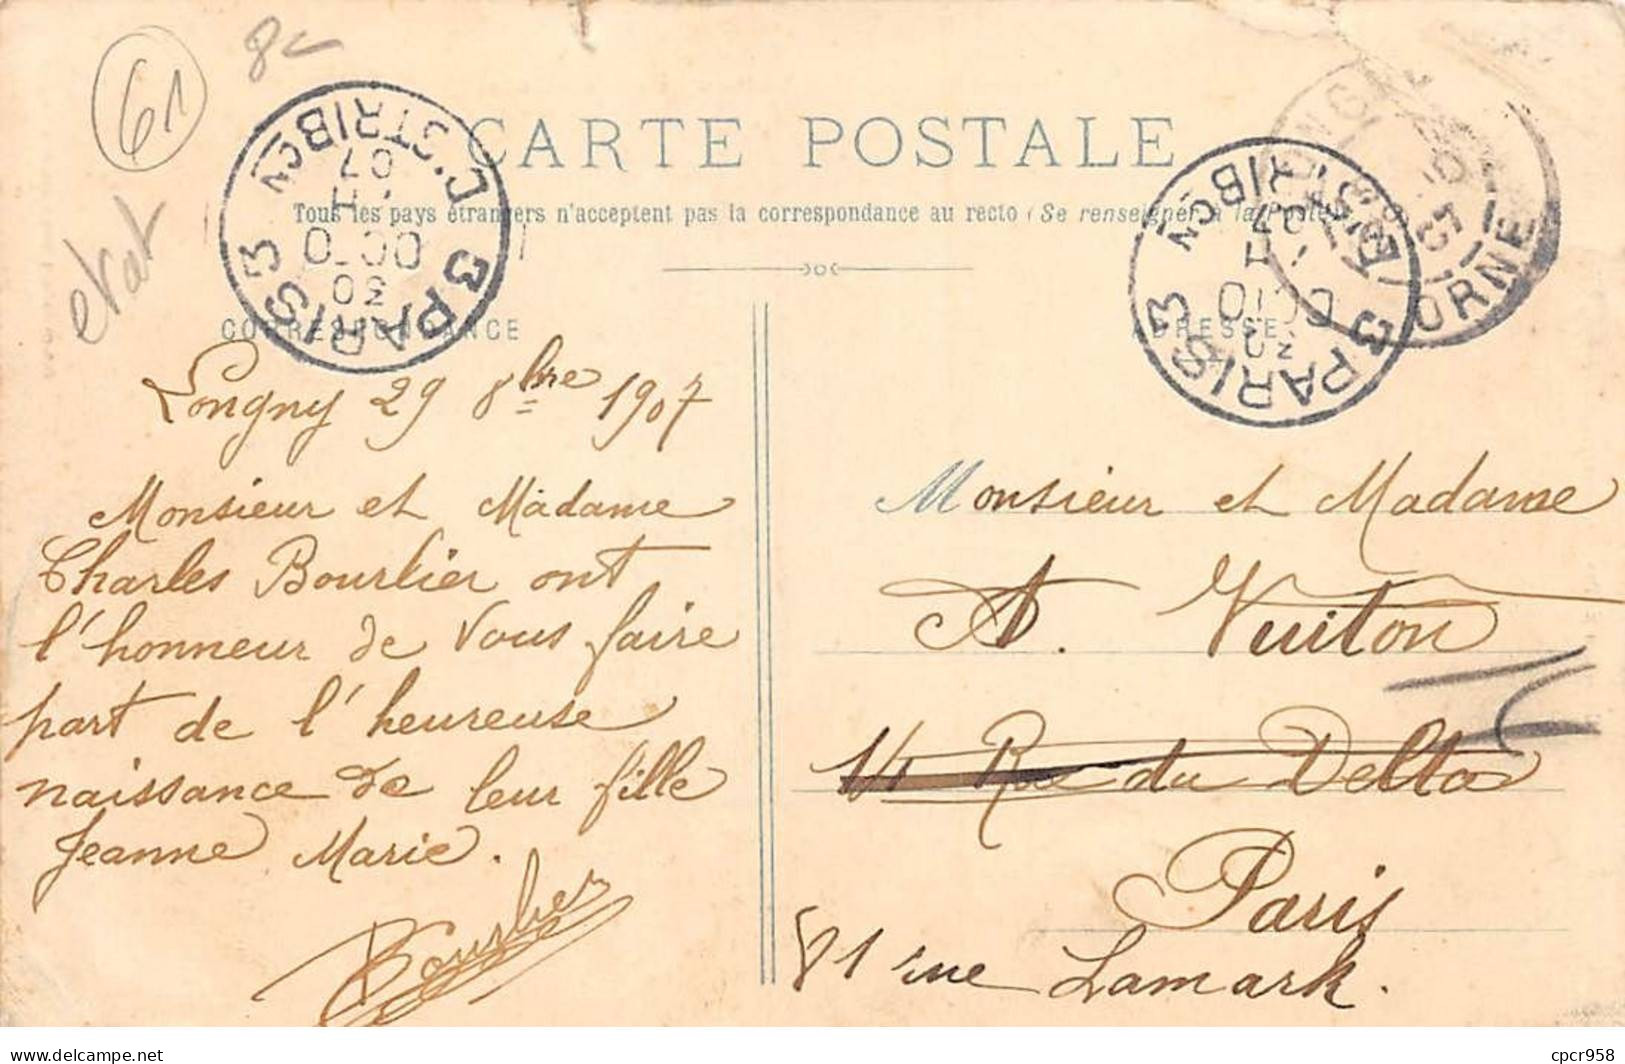 61
8c
etat
CARTE POSTALE
Tous les pays étrangers n'acceptent pas la correspondance au recto (Se renseigner à la Poste)
PARIS 3
DISTRIBon
30
OCTO
07
PARIS 3
DISTRIBon
30
OCTO
07
ORNE
CORRESPONDANCE
ADRESSE
Longny 29 8bre 1907
Monsieur et Madame
Charles Bourlier ont
l'honneur de Vous faire
part de l'heureuse
naissance de leur fille
Jeanne Marie.
Bourlier
Monsieur et Madame
A. Vuiton
14 Rue du Delta
Paris
81 rue Lamark.
cpcr958